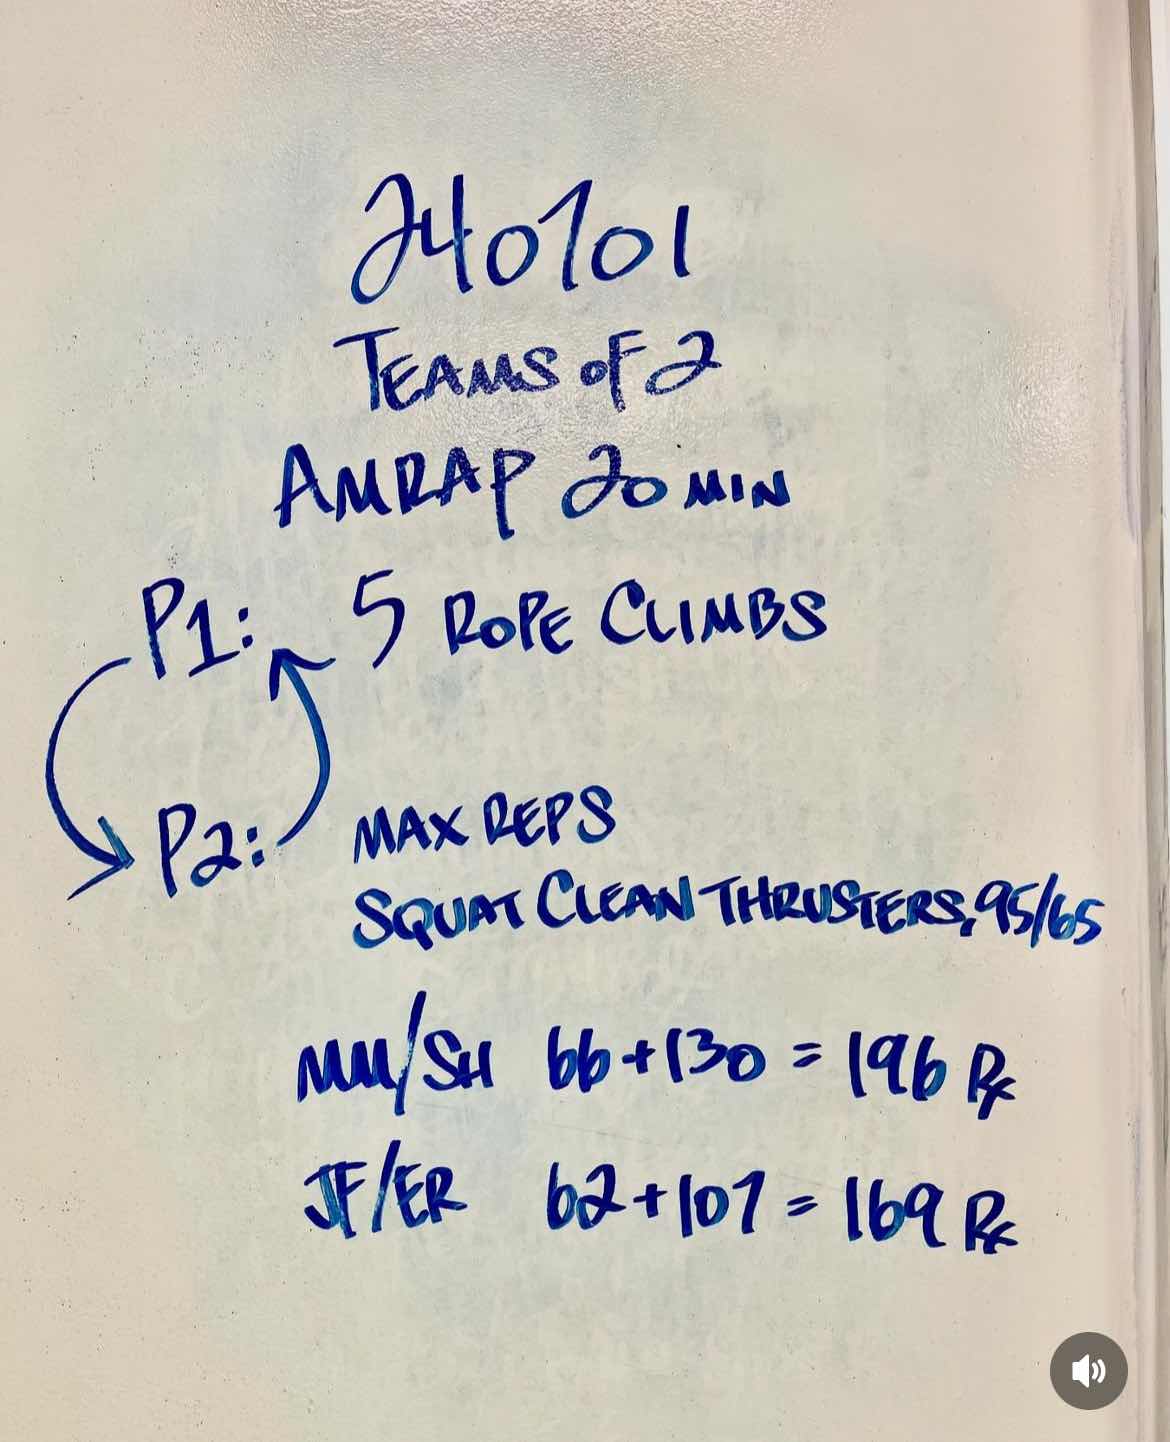 240701
TEAMS OF 2
AMRAP 20 MIN
P1: 5 ROPE CLIMBS
P2: MAX REPS
SQUAT CLEAN THRUSTERS, 95/65
MM/SH 66+130 = 196 Rx
JF/ER 62+107 = 169 Rx